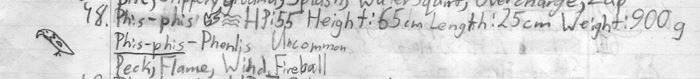 Slippery ground, Splash, Water Squirt, Overcharge, Zap
48. Phis-phis HP:55 Height:65cm Length:25cm Weight:900g
Phis-phis-Phenlis Uncommon
Peck, Flame, Wind, Fireball